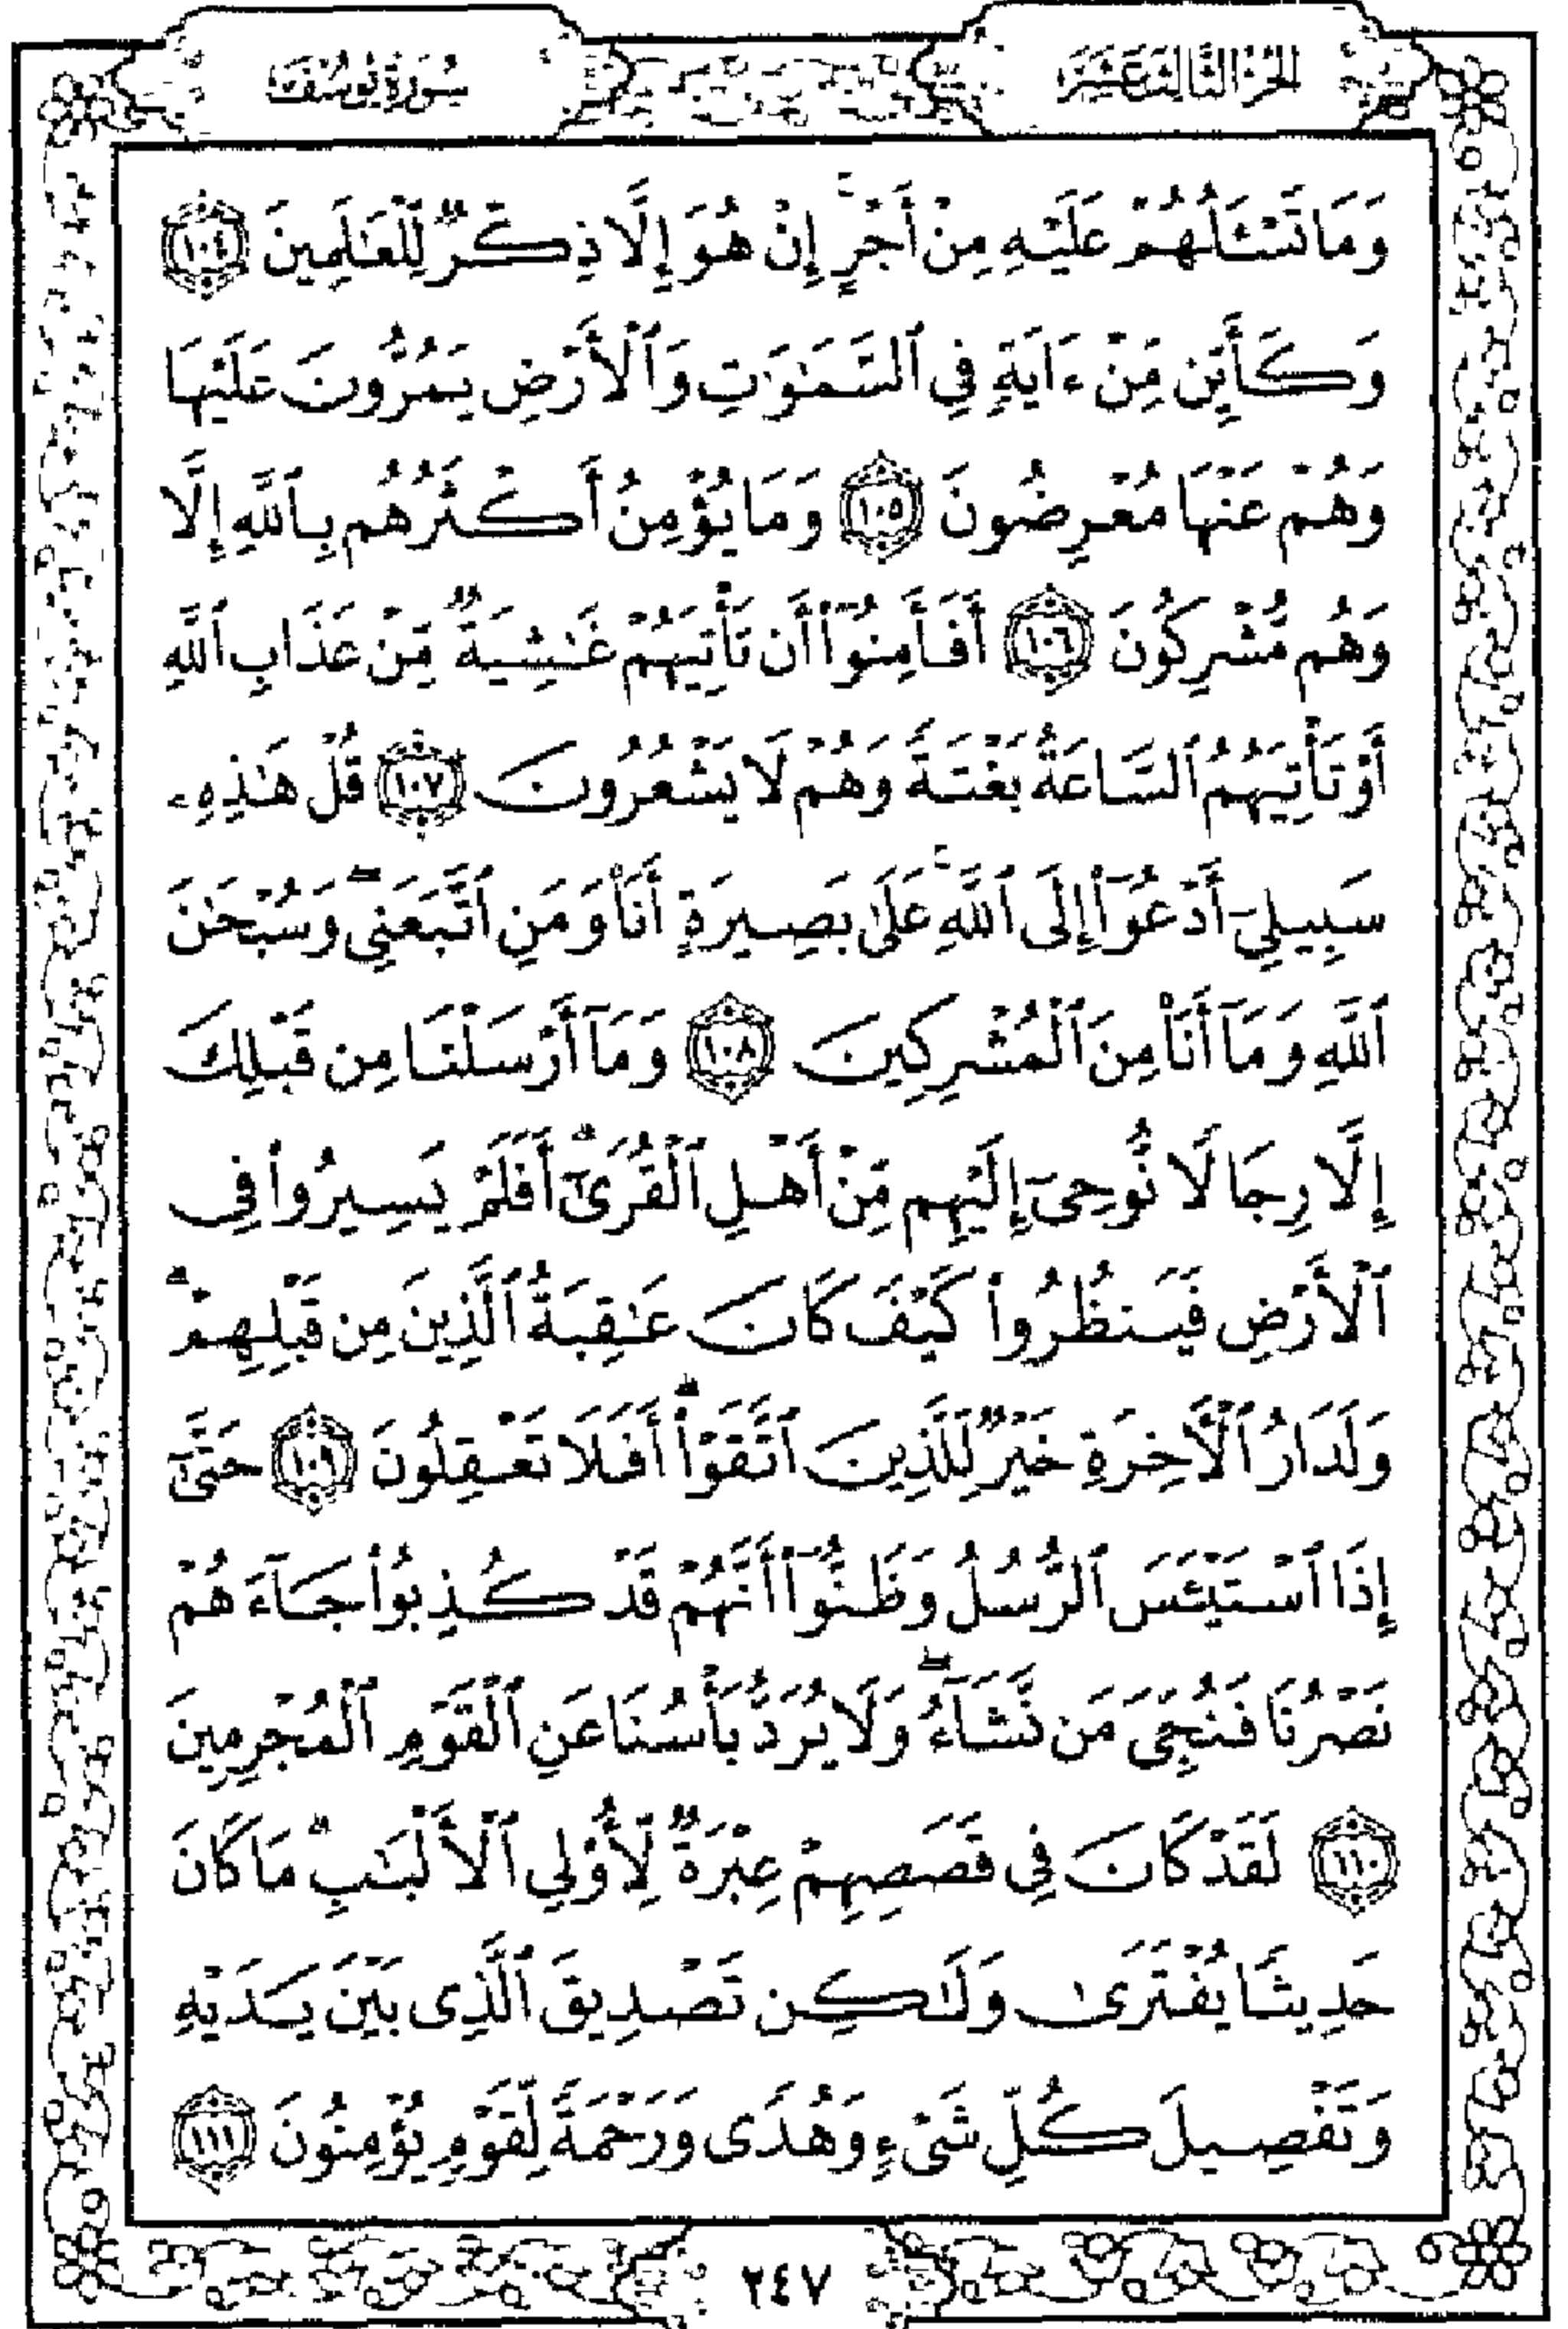 الجزء الثالث عشر
سورة يوسف
وَمَا تَسْـَٔلُهُمْ عَلَيْهِ مِنْ أَجْرٍ ۚ إِنْ هُوَ إِلَّا ذِكْرٌ لِّلْعَـٰلَمِينَ ١٠٤
وَكَأَيِّن مِّنْ ءَايَةٍ فِى ٱلسَّمَـٰوَٰتِ وَٱلْأَرْضِ يَمُرُّونَ عَلَيْهَا
وَهُمْ عَنْهَا مُعْرِضُونَ ١٠٥ وَمَا يُؤْمِنُ أَكْثَرُهُم بِٱللَّهِ إِلَّا
وَهُم مُّشْرِكُونَ ١٠٦ أَفَأَمِنُوٓا۟ أَن تَأْتِيَهُمْ غَـٰشِيَةٌ مِّنْ عَذَابِ ٱللَّهِ
أَوْ تَأْتِيَهُمُ ٱلسَّاعَةُ بَغْتَةً وَهُمْ لَا يَشْعُرُونَ ١٠٧ قُلْ هَـٰذِهِۦ
سَبِيلِىٓ أَدْعُوٓا۟ إِلَى ٱللَّهِ ۚ عَلَىٰ بَصِيرَةٍ أَنَا۠ وَمَنِ ٱتَّبَعَنِى ۖ وَسُبْحَـٰنَ
ٱللَّهِ وَمَآ أَنَا۠ مِنَ ٱلْمُشْرِكِينَ ١٠٨ وَمَآ أَرْسَلْنَا مِن قَبْلِكَ
إِلَّا رِجَالًا نُّوحِىٓ إِلَيْهِم مِّنْ أَهْلِ ٱلْقُرَىٰٓ ۗ أَفَلَمْ يَسِيرُوا۟ فِى
ٱلْأَرْضِ فَيَنظُرُوا۟ كَيْفَ كَانَ عَـٰقِبَةُ ٱلَّذِينَ مِن قَبْلِهِمْ ۗ
وَلَدَارُ ٱلْـَٔاخِرَةِ خَيْرٌ لِّلَّذِينَ ٱتَّقَوْا۟ ۗ أَفَلَا تَعْقِلُونَ ١٠٩ حَتَّىٰٓ
إِذَا ٱسْتَيْـَٔسَ ٱلرُّسُلُ وَظَنُّوٓا۟ أَنَّهُمْ قَدْ كُذِبُوا۟ جَآءَهُمْ
نَصْرُنَا فَنُجِّىَ مَن نَّشَآءُ ۖ وَلَا يُرَدُّ بَأْسُنَا عَنِ ٱلْقَوْمِ ٱلْمُجْرِمِينَ
١١٠ لَقَدْ كَانَ فِى قَصَصِهِمْ عِبْرَةٌ لِّأُو۟لِى ٱلْأَلْبَـٰبِ ۗ مَا كَانَ
حَدِيثًا يُفْتَرَىٰ وَلَـٰكِن تَصْدِيقَ ٱلَّذِى بَيْنَ يَدَيْهِ
وَتَفْصِيلَ كُلِّ شَىْءٍ وَهُدًى وَرَحْمَةً لِّقَوْمٍ يُؤْمِنُونَ ١١١
٢٤٧